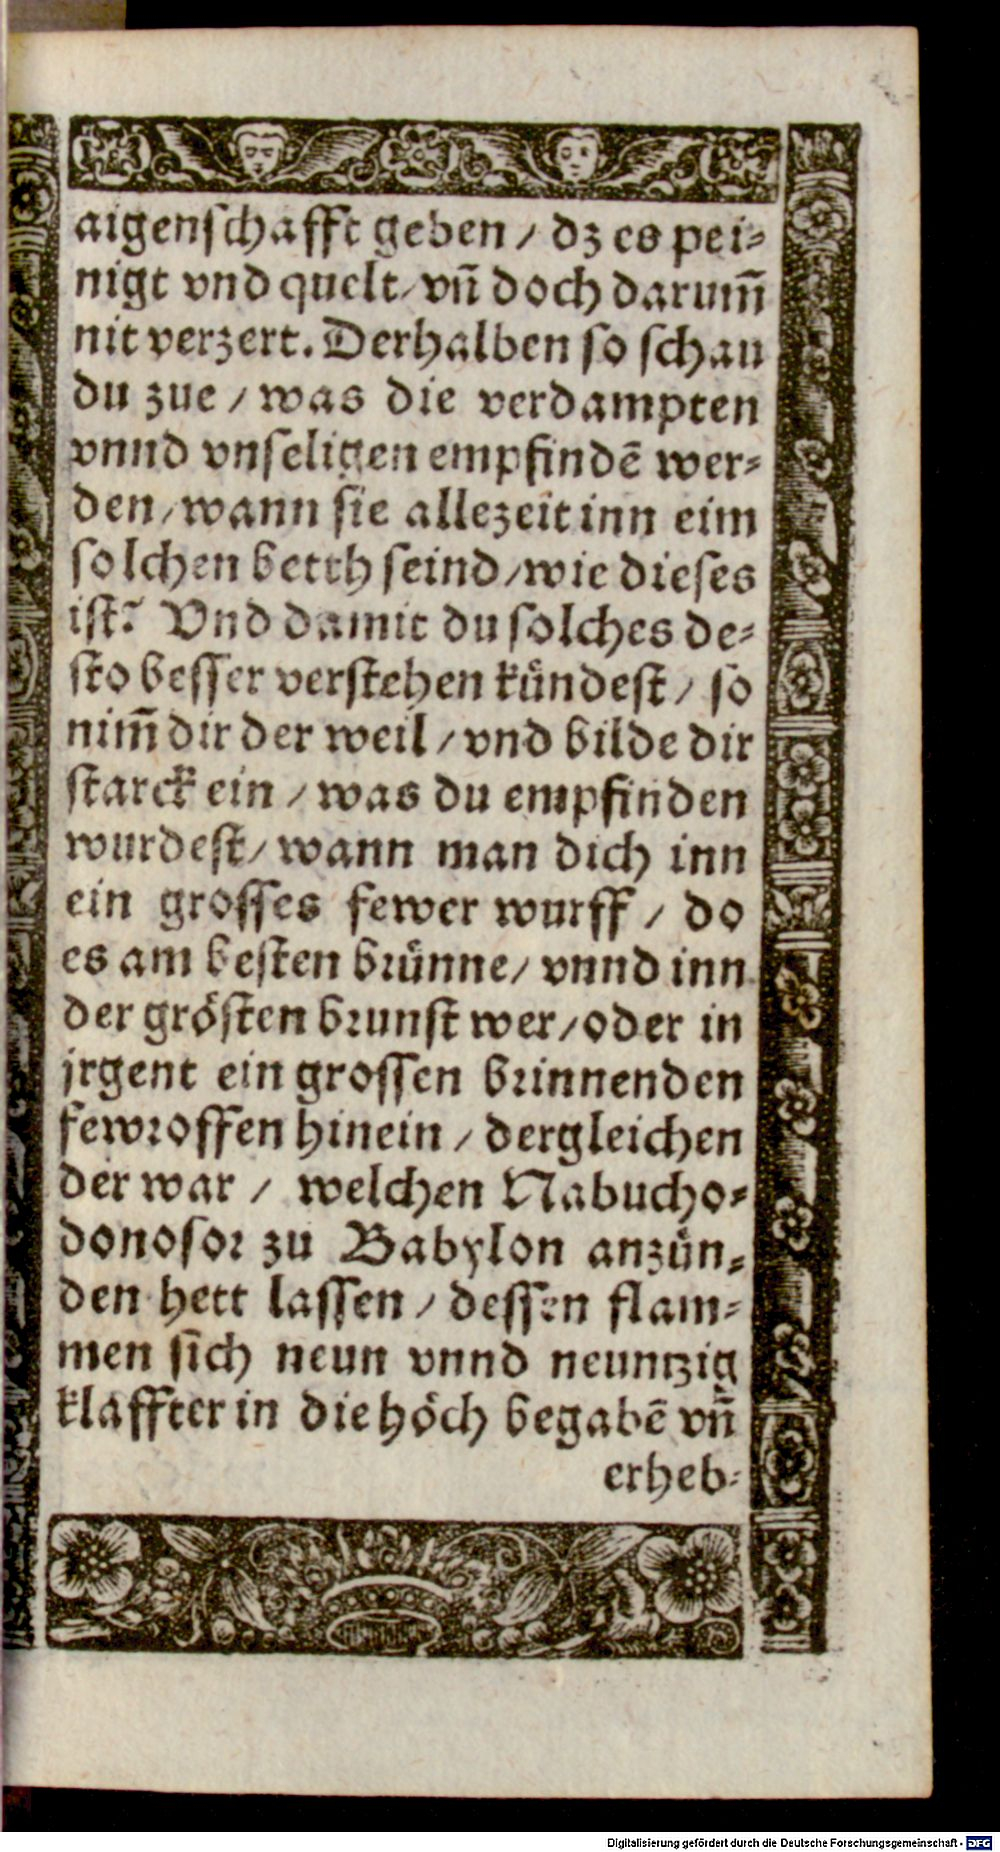 aigenschafft geben / dz es pei⸗
nigt vnd quelt / vñ doch darum̃
nit verzert. Derhalben so schau
du zue / was die verdampten
vnnd vnseligen empfindẽ wer⸗
den / wann sie allezeit inn eim
solchen betth seind / wie dieses
ist? Vnd damit du solches de⸗
sto besser verstehen kündest / so
nim̃ dir der weil / vnd bilde dir
starck ein / was du empfinden
wurdest / wann man dich inn
ein grosses fewer wurff / do
es am besten brünne / vnnd inn
der grösten brunst wer / oder in
jrgent ein grossen brinnenden
fewroffen hinein / dergleichen
der war / welchen Nabucho⸗
donosor zu Babylon anzün⸗
den hett lassen / dessen flam⸗
men sich neun vnnd neuntzig
klaffter in die höch begabẽ vñ
erheb⸗
Digitalisierung gefördert durch die Deutsche Forschungsgemeinschaft - DFG